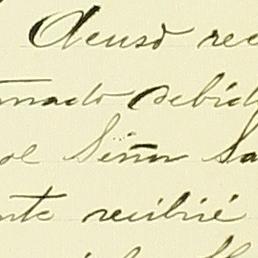 Acuso rec
mado debid
del Señor Sa
nte recibiré